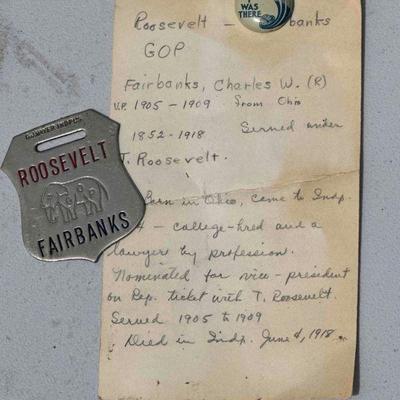 WAS
THERE
Roosevelt – banks
GOP
Fairbanks, Charles W. (R)
V.P. 1905 – 1909 from Ohio
1852 – 1918 Served under
T. Roosevelt.
ROOSEVELT
FAIRBANKS
Born in Ohio, came to Indp.
4 – college-bred and a
lawyer by profession.
Nominated for vice-president
on Rep. ticket with T. Roosevelt.
Served 1905 to 1909
Died in Indp. June 4, 1918.